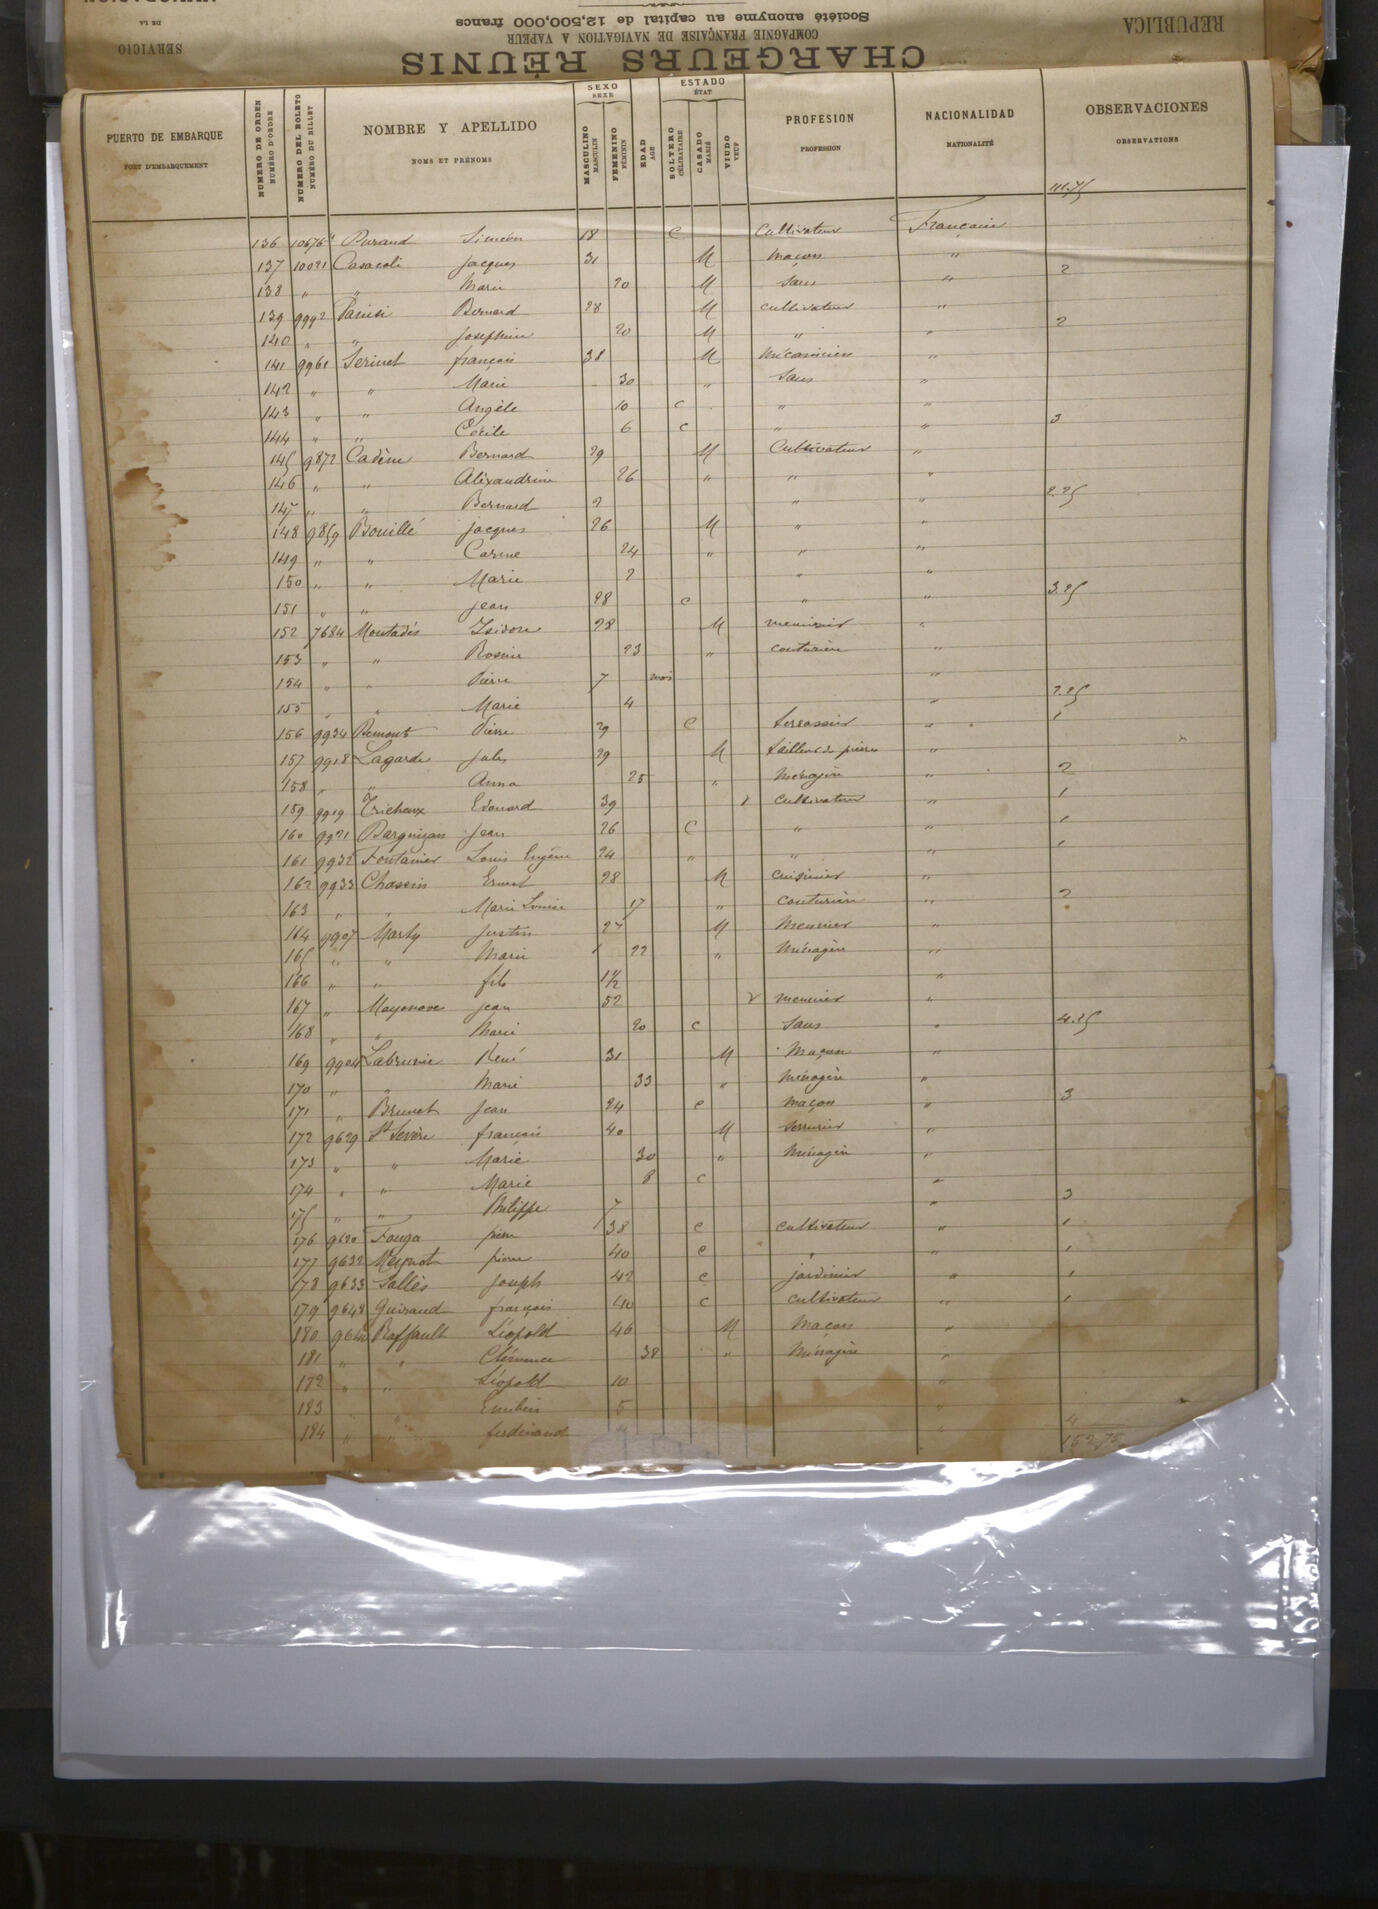 SERVICIO
DE LA
REPUBLICA
CHARGEURS RÉUNIS
COMPAGNIE FRANÇAISE DE NAVIGATION A VAPEUR
Société anonyme au capital de 12,500,000 francs
PUERTO DE EMBARQUE NUMERO DE ORDEN NUMERO DEL BOLETO NOMBRE Y APELLIDO SEXO MASCULINO FEMENINO EDAD ESTADO SOLTERO CASADO VIUDO PROFESION NACIONALIDAD OBSERVACIONES
PORT D'EMBARQUEMENT NUMÉRO D'ORDRE NUMÉRO DU BILLET NOMS ET PRÉNOMS SEXE MASCULIN FÉMININ AGE ÉTAT CÉLIBATAIRE MARIÉ VEUF PROFESSION NATIONALITÉ OBSERVATIONS
136 Durand Siméon 18 C Cultivateur Français
137 10021 Casacoli Jacques 31 M Maçon "
138 " " Marie 20 M Sans " 2
139 9992 Parisi Bernard 28 M cultivateur "
140 " " Josephine 20 M " " 2
141 9961 Serinet françois 38 M Mécanicien "
142 " " Marie 30 " Sans "
143 " " Angèle 10 C " "
144 " " Cécile 6 C " " 3
145 9872 Cadène Bernard 29 M Cultivateur "
146 " " Alexandrine 26 " " "
147 " " Bernard 2 " " 2.25
148 9859 Bouillé Jacques 26 M " "
149 " " Carme 24 " " "
150 " " Marie 2 " "
151 " " Jean 28 C " " 3.25
152 7684 Montadés Isidore 28 M menuisier "
153 " " Rosine 23 " couturière "
154 " " Pierre 7 mois "
155 " " Marie 4 " 2.25
156 9934 Remont Pierre 29 C terrassier " 1
157 9918 Lagarde Jules 29 M tailleur de pierres "
158 " " Anna 25 " Ménagère " 2
159 9919 Tricheux Edouard 39 V cultivateur " 1
160 9921 Barguisan Jean 26 C " " 1
161 9932 Fontanier Louis Eugène 24 " " " 1
162 9933 Chassin Ernest 28 M cuisinier "
163 " " Marie Louise 17 " couturière " 2
164 9907 Marty Justin 27 M Meunier "
165 " " Marie 22 " Ménagère "
166 " " fils 1½ "
167 " Mayonove Jean 52 V meunier "
168 " " Marie 20 C Sans " 4.25
169 9904 Labrunie René 31 M Maçon "
170 " " Marie 33 " Ménagère "
171 " Brunet Jean 24 C Maçon " 3
172 9629 St Sevère françois 40 M Serrurier "
173 " " Marie 30 " Ménagère "
174 " " Marie 8 C "
175 " " Philippe 7 " 3
176 9620 Fouga pierre 38 C cultivateur " 1
177 9632 Meynot pierre 40 C " " 1
178 9633 Sallès Joseph 42 C jardinier " 1
179 9648 Guiraud françois 40 C cultivateur " 1
180 Raffault Léopold 46 M Maçon "
181 " " Clémence 38 " Ménagère "
182 " " Léopold 10 "
183 " Emilien 5 "
184 " " ferdinand " 4
152.75